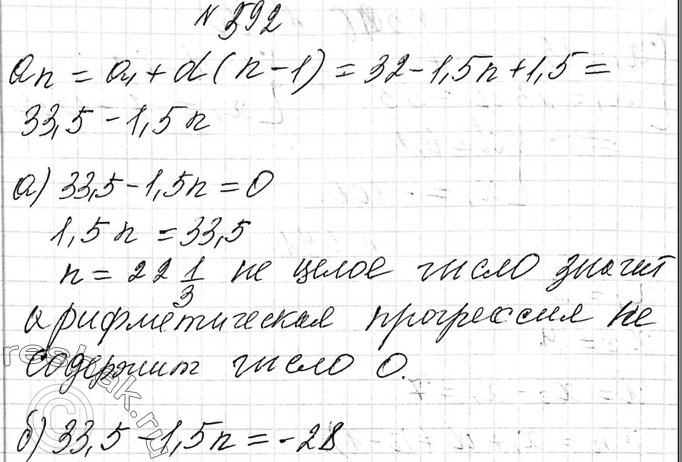 № 592
an = a1 + d(n-1) = 32-1,5n+1,5 =
33,5-1,5n
а) 33,5-1,5n=0
1,5n = 33,5
n = 22 1/3 не целое число значит
арифметическая прогрессия не
содержит число 0.
б) 33,5-1,5n=-28
reshak.ru